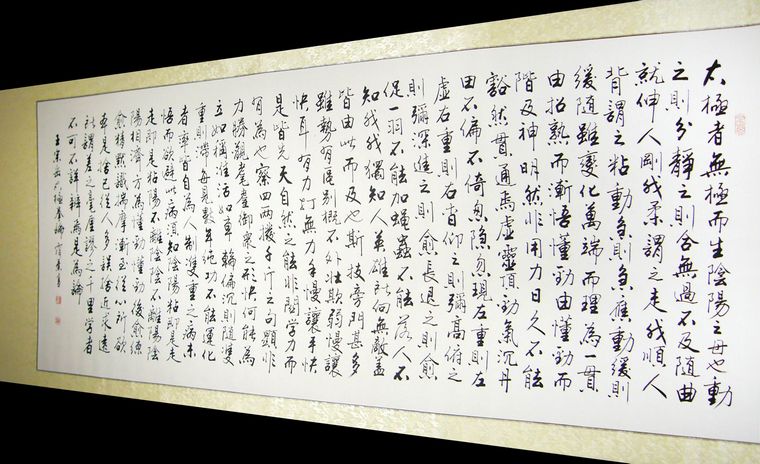 太極者無極而生陰陽之母也動
之則分靜之則合無過不及隨曲
就伸人剛我柔謂之走我順人
背謂之粘動急則急應動緩則
緩隨雖變化萬端而理為一貫
由招熟而漸悟懂勁由懂勁而
階及神明然非用力日久不能
豁然貫通焉虛靈頂勁氣沉丹
田不偏不倚忽隱忽現左重則左
虛右重則右杳仰之則彌高俯之
則彌深進之則愈長退之則愈
促一羽不能加蠅蟲不能落人不
知我我獨知人英雄所向無敵蓋
皆由此而及也斯技旁門甚多
雖勢有區別概不外壯欺弱慢讓
快耳有力打無力手慢讓手快
是皆先天自然之能非關學力而
有為也察四兩撥千斤之句顯非
力勝觀耄耋御衆之形快何能為
立如秤准活如車輪偏沉則隨雙
重則滯每見數年純功不能運化
者率皆自為人制雙重之病未
悟而欲避此病須知陰陽粘即是走
走即是粘陽不離陰陰不離陽陰
陽相濟方為懂勁懂勁後愈練
愈精默識揣摩漸至從心所欲
本是捨己從人多誤捨近求遠
所謂差之毫厘謬之千里學者
不可不詳辨焉是為論
王宗岳太極拳論